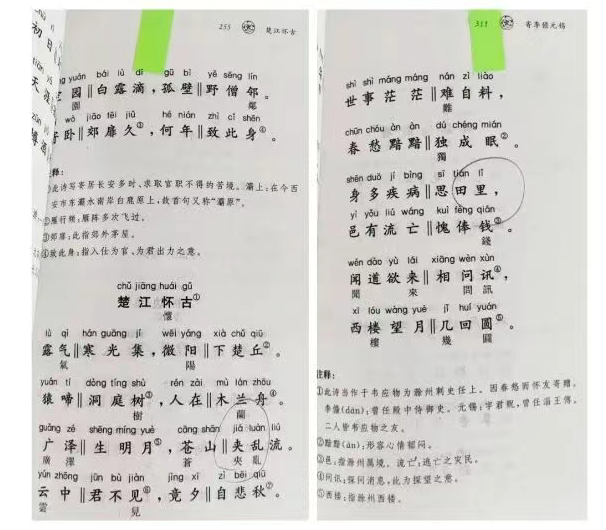 255 楚江怀古
初日
天涯
yuán bái lù dī gū bì yě sēng lín
园‖白露滴，孤壁‖野僧邻。
園 鄰
wò jiāo fēi jiǔ hé nián zhì cǐ shēn
卧‖郊扉久③，何年‖致此身④。
注释：
①此诗写寄居长安多时、求取官职不得的苦境。灞上：在今西
安市东灞水南岸白鹿原上，故首句又称“灞原”。
②雁行频：雁阵多次飞过。
③郊扉：此指郊外茅屋。
④致此身：指入仕为官、为君出力之意。
chǔ jiāng huái gǔ
楚江怀古①
懷
lù qì hán guāng jí wēi yáng xià chǔ qiū
露气‖寒光集，微阳‖下楚丘②。
氣 陽
yuán tí dòng tíng shù rén zài mù lán zhōu
猿啼‖洞庭树③，人在‖木兰舟④。
樹 蘭
guǎng zé shēng míng yuè cāng shān jiá luàn liú
广泽‖生明月⑤，苍山‖夹乱流。
廣澤 蒼 夾亂
yún zhōng jūn bù jiàn jìng xī zì bēi qiū
云中‖君不见⑥，竟夕‖自悲秋⑦。
雲 見
311 寄李儋元锡
shì shì máng máng nán zì liào
世事茫茫‖难自料，
難
chūn chóu àn àn dú chéng mián
春愁黯黯‖独成眠②。
獨
shēn duō jí bìng sī tián lǐ
身多疾病‖思田里，
yì yǒu liú wáng kuì fèng qián
邑有流亡‖愧俸钱③。
錢
wén dào yù lái xiāng wèn xùn
闻道欲来‖相问讯④，
聞 來 問訊
xī lóu wàng yuè jǐ huí yuán
西楼望月‖几回圆⑤。
樓 幾 圓
注释：
①此诗当作于韦应物为滁州刺史任上。因春愁而怀友寄赠。
李儋(dān)：曾任殿中侍御史。元锡：字君贶，曾任淄王傅。
二人皆韦应物之友。
②黯黯(àn)：形容心情郁闷。
③邑：指滁州属境。流亡：逃亡之灾民。
④问讯：探问消息，此为探望之意。
⑤西楼：指滁州西楼。